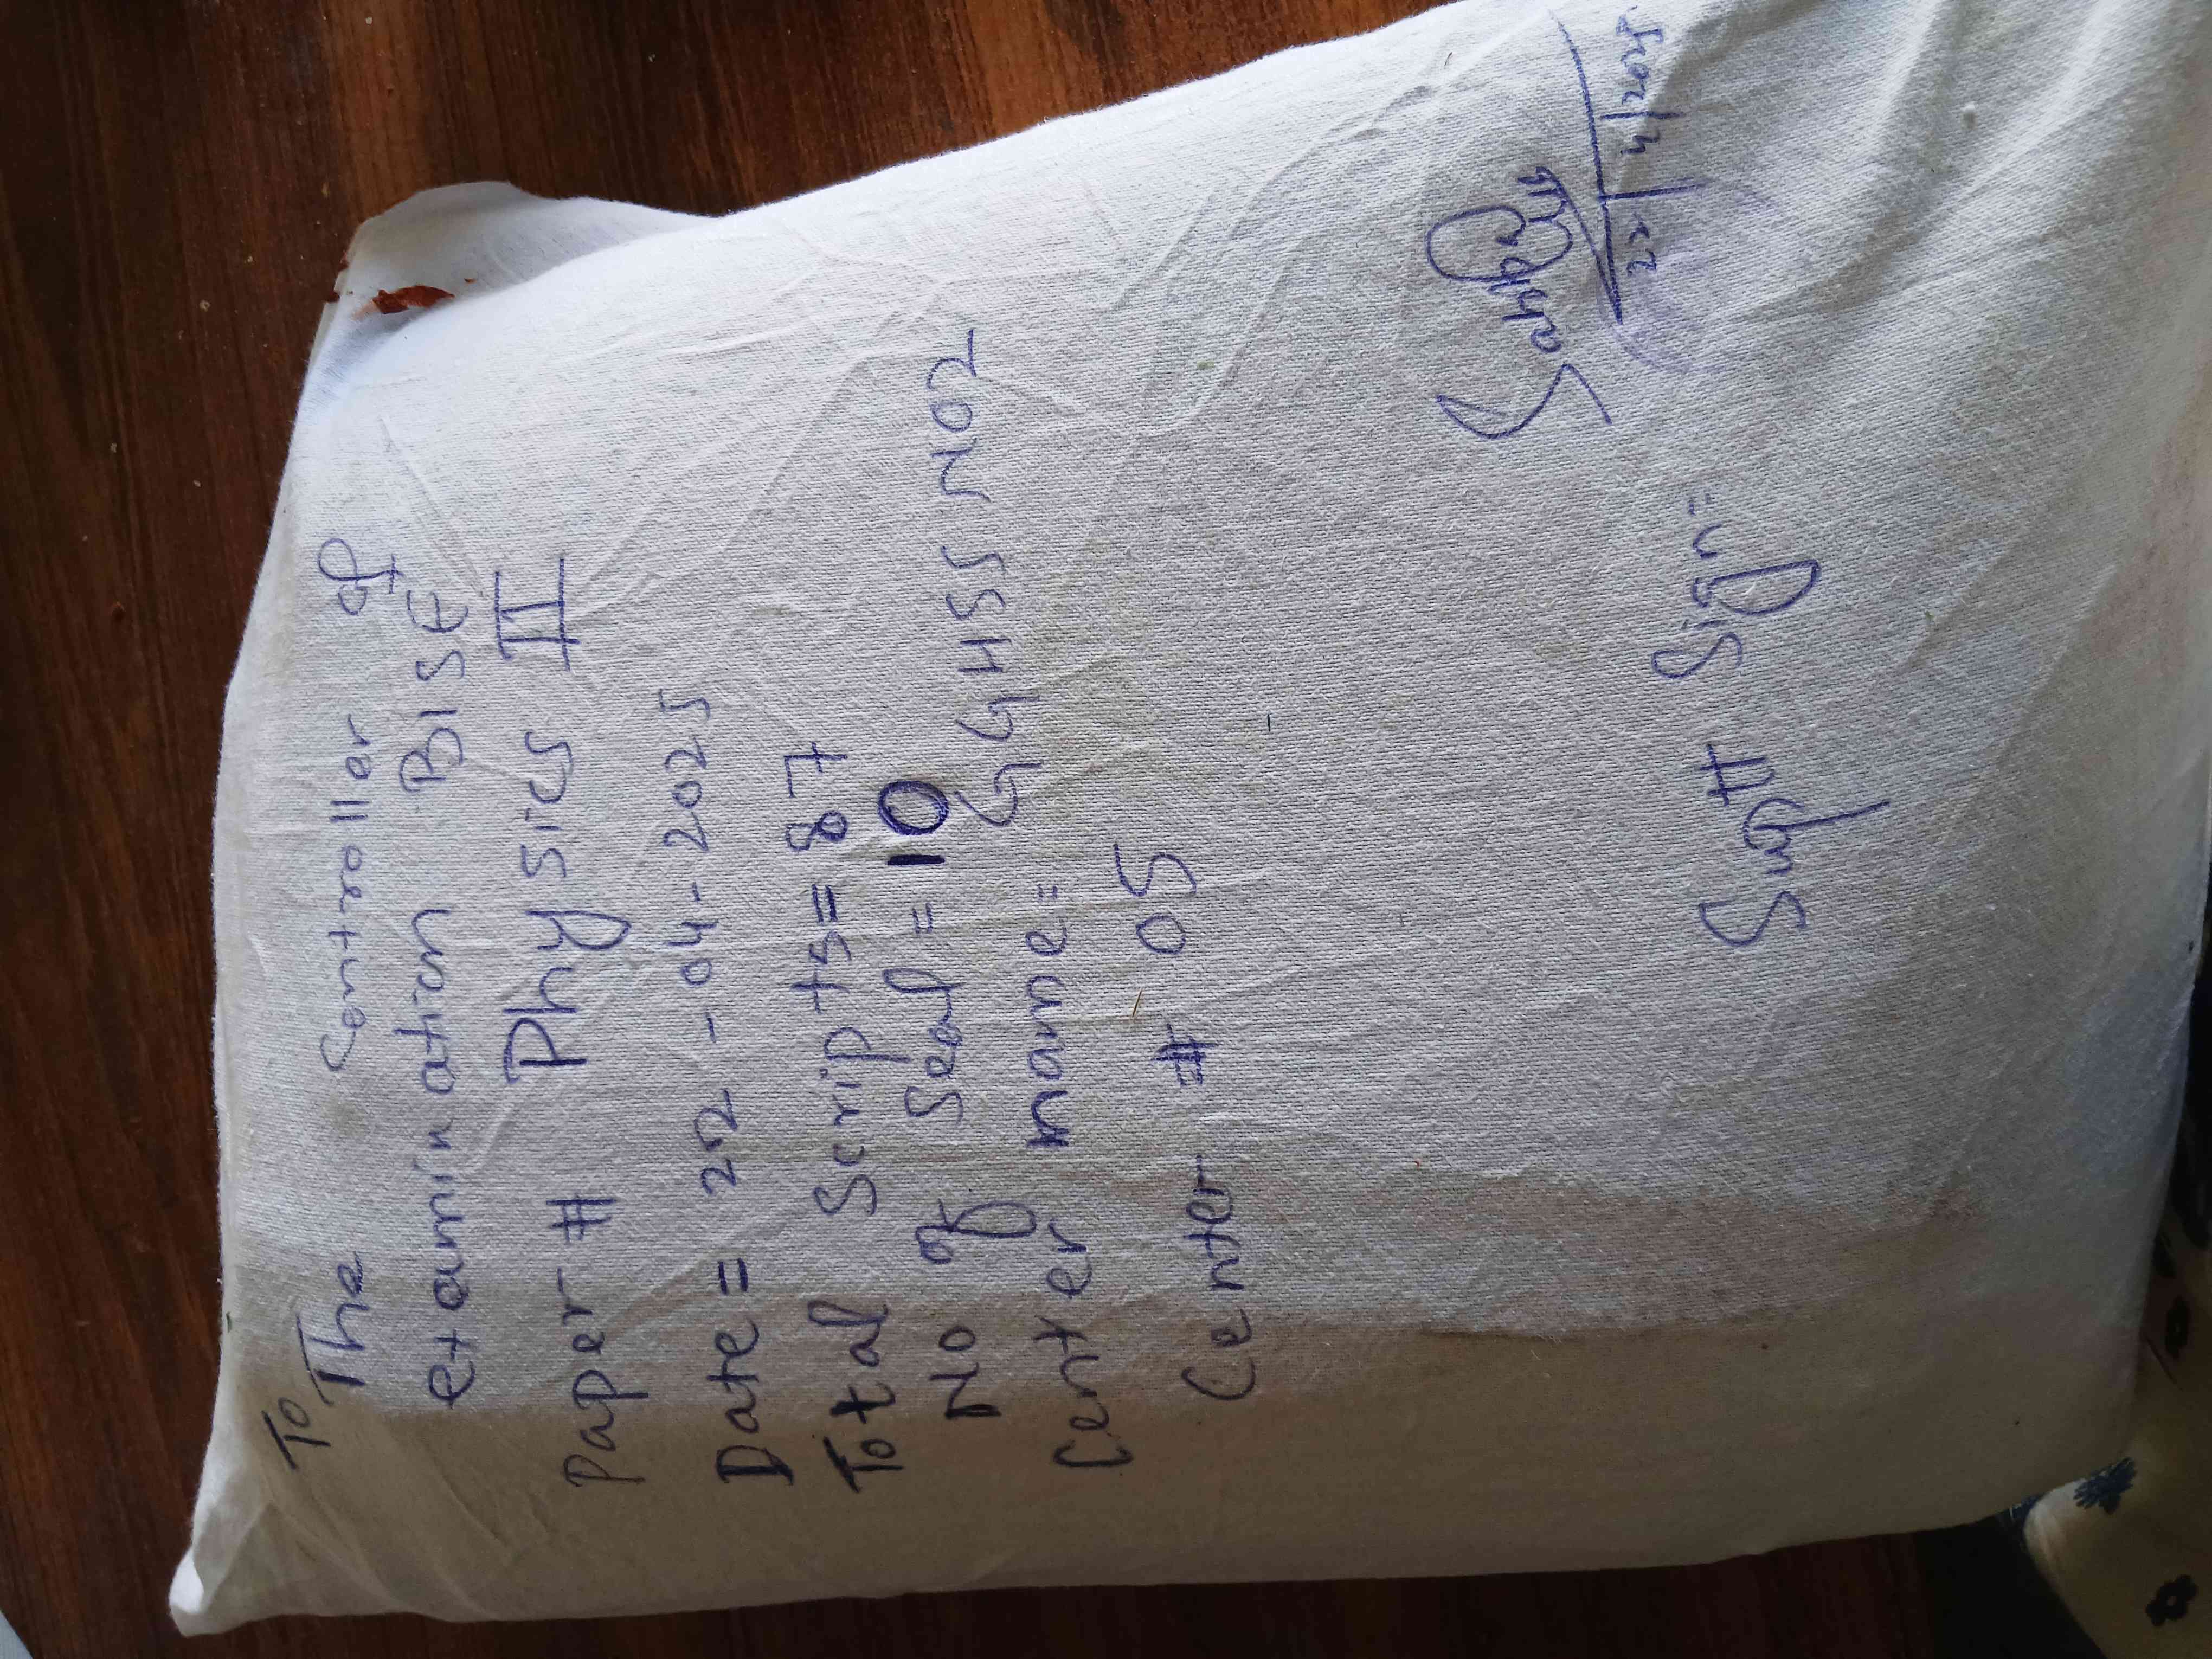 To
The Controller of
examination BISE
Paper # Physics II
Date = 22 - 04 - 2025
Total Scripts = 87
No of Seal = 10
Center name = GGHSS NO2
Center # 05
Suptt Sign =
22/4/2025